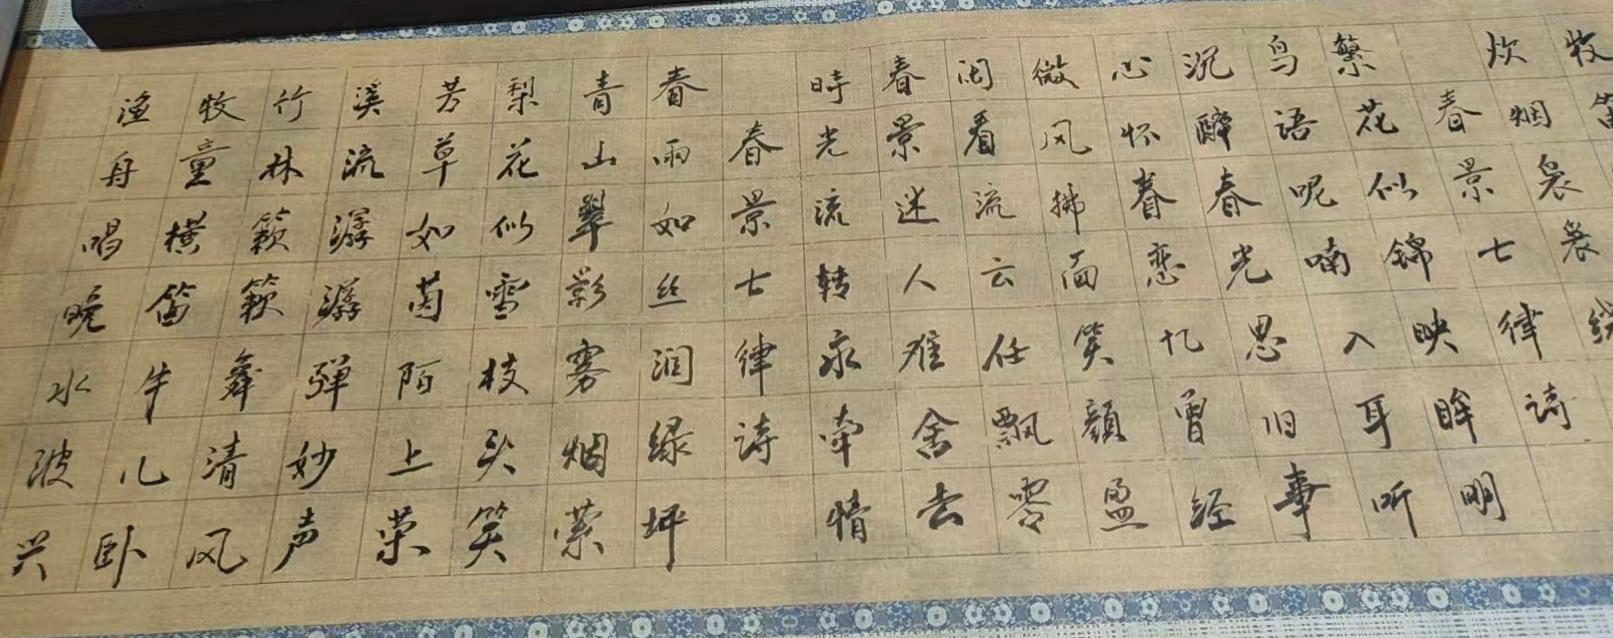 牧笛
炊烟袅袅绕
春景七律诗
繁花似锦映眸明
鸟语呢喃入耳听
沉醉春光思旧事
心怀眷恋忆曾经
微风拂面笑颜盈
闲看流云任飘零
春景迷人难舍去
時光流转永牵情
春景七律诗
春雨如丝润绿坪
青山翠影雾烟萦
梨花似雪枝头笑
芳草如茵陌上荣
溪流潺潺弹妙声
竹林簌簌舞清风
牧童横笛牛儿卧
渔舟唱晚水波兴